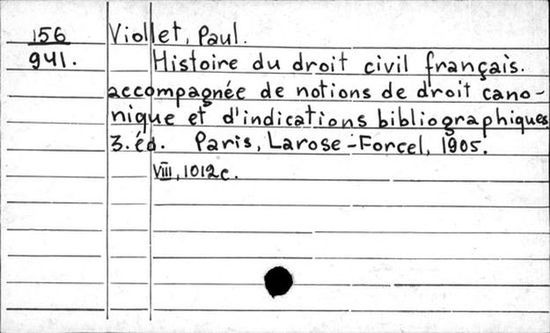 156 Viollet, Paul.
941. Histoire du droit civil français.
accompagnée de notions de droit cano-
nique et d'indications bibliographiques
3. éd. Paris, Larose-Forcel, 1905.
VIII, 1012c.